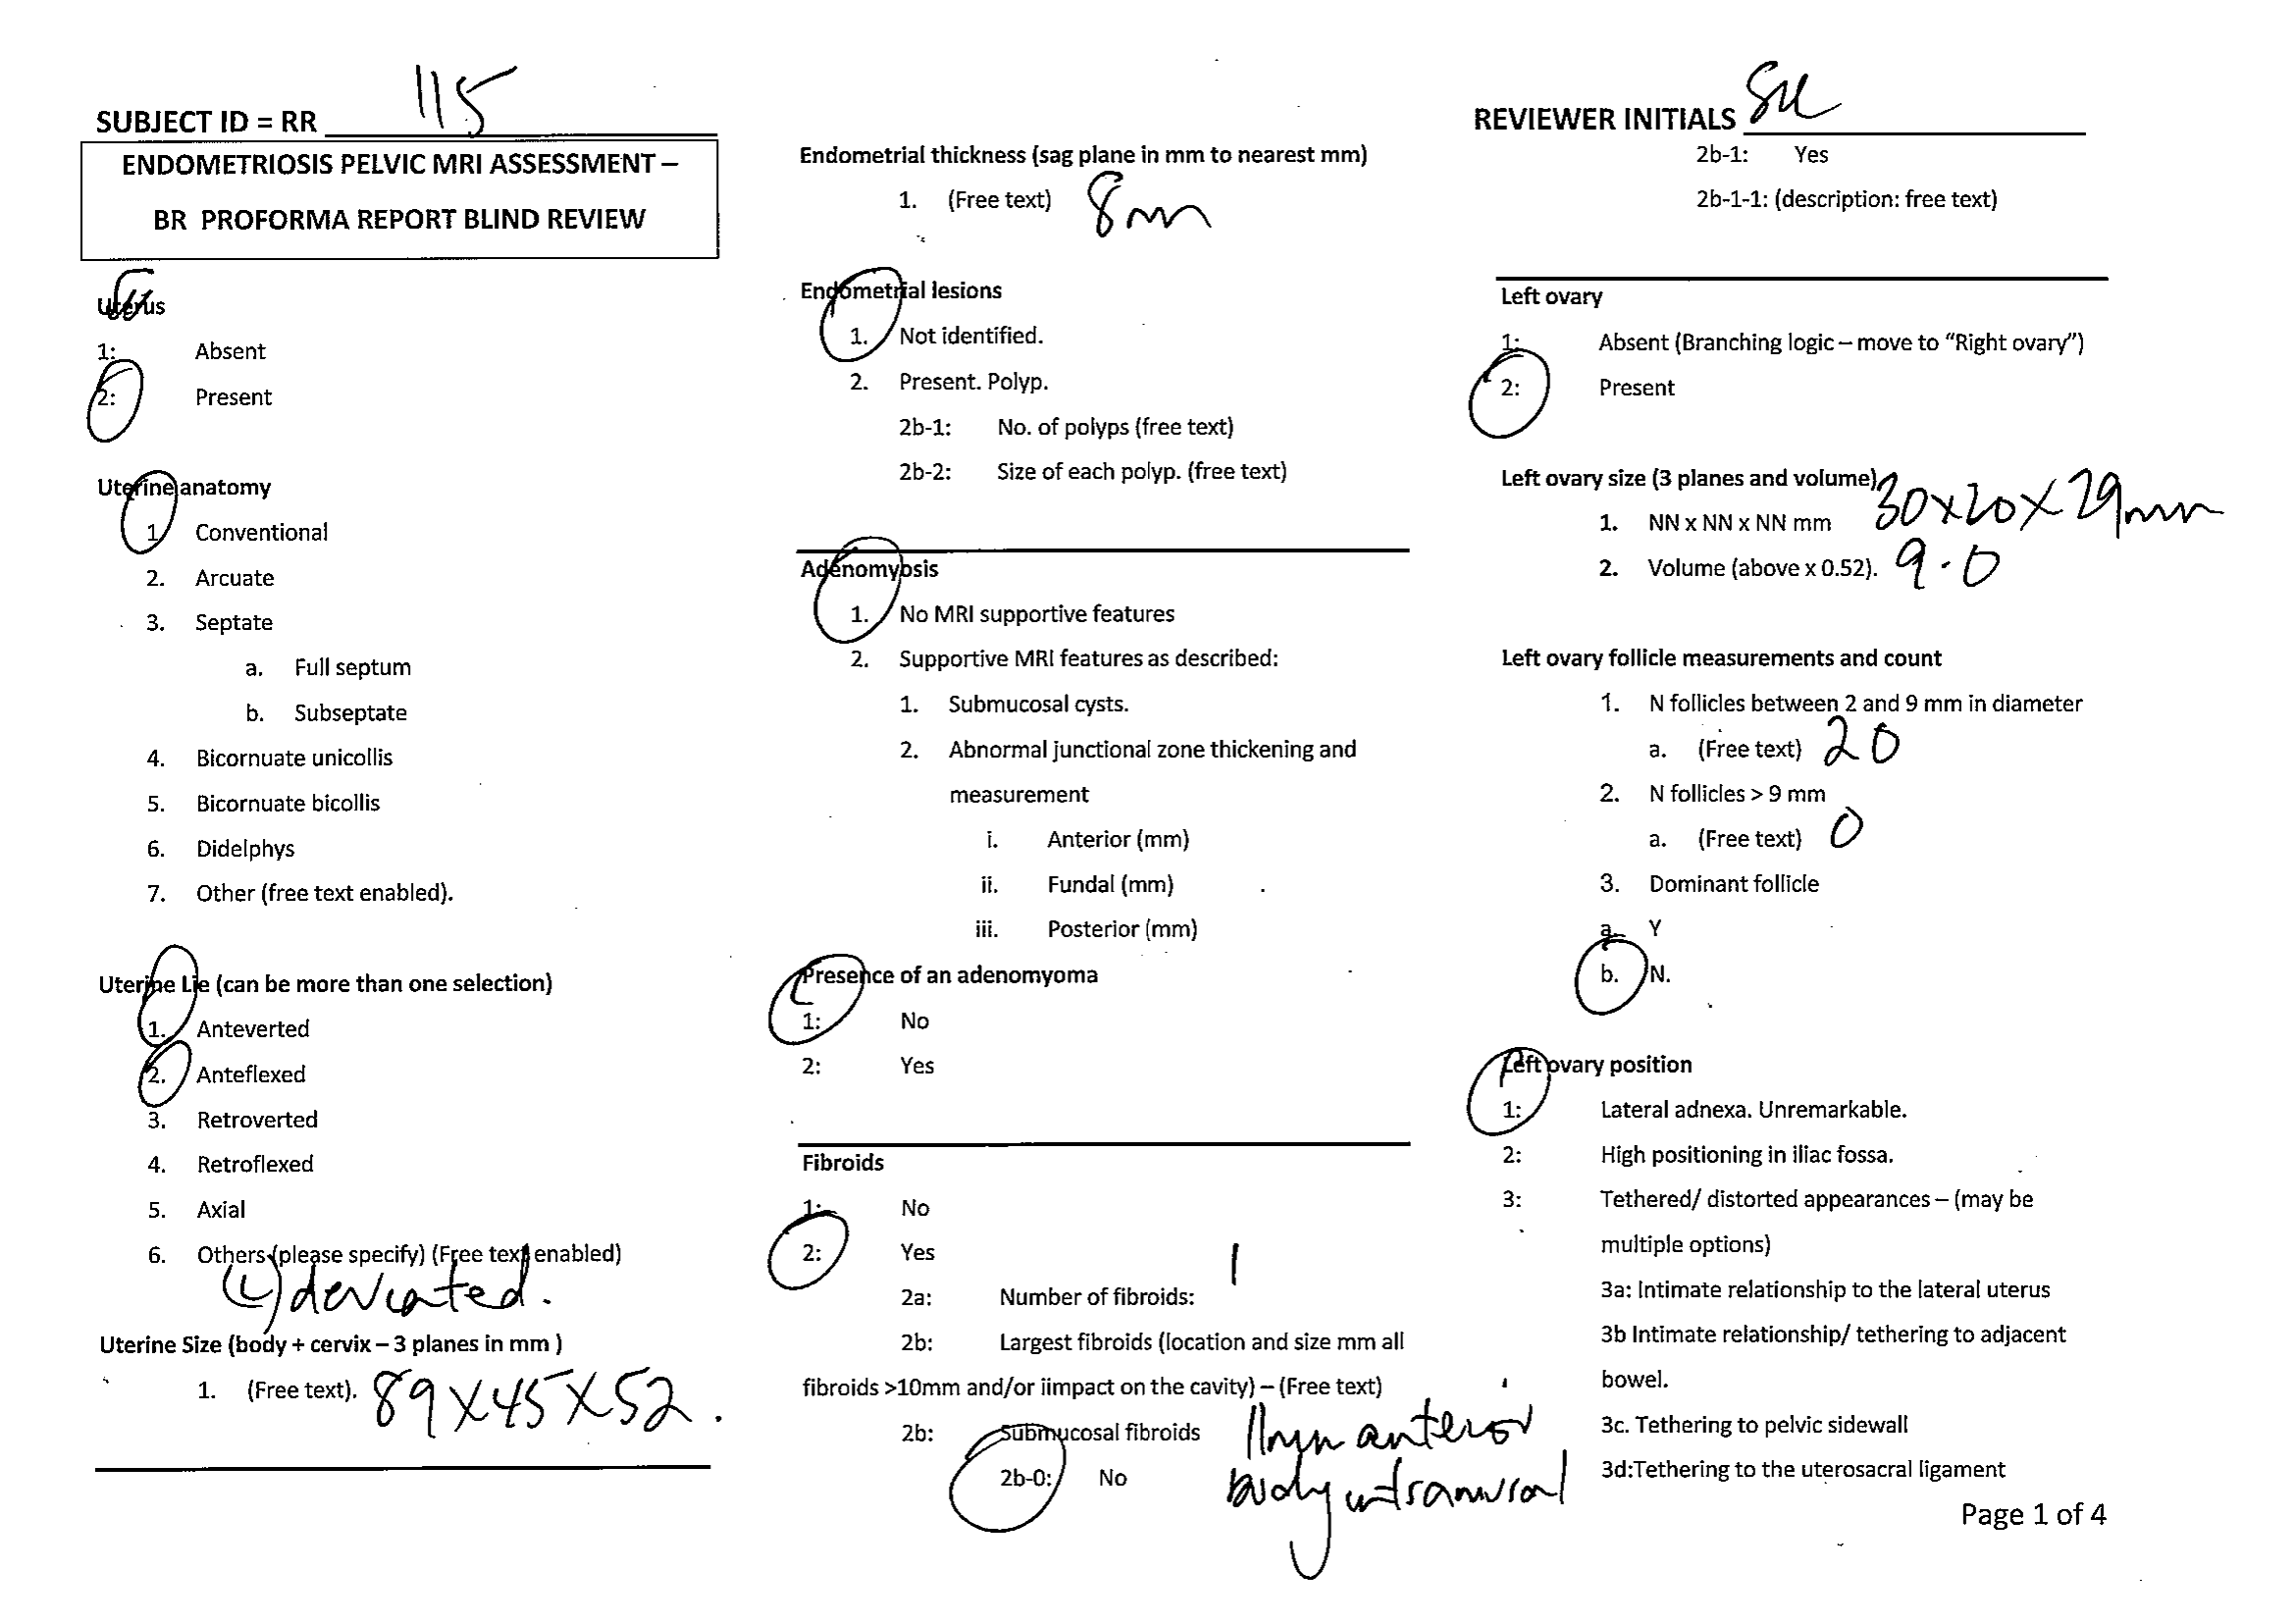 SUBJECT ID = RR 115
ENDOMETRIOSIS PELVIC MRI ASSESSMENT –
BR PROFORMA REPORT BLIND REVIEW
Uterus
1: Absent
2: Present
Uterine anatomy
1 Conventional
2. Arcuate
3. Septate
a. Full septum
b. Subseptate
4. Bicornuate unicollis
5. Bicornuate bicollis
6. Didelphys
7. Other (free text enabled).
Uterine Lie (can be more than one selection)
1. Anteverted
2. Anteflexed
3. Retroverted
4. Retroflexed
5. Axial
6. Others (please specify) (Free text enabled)
(L) deviated.
Uterine Size (body + cervix – 3 planes in mm )
1. (Free text). 89 X 45 X 52.
Endometrial thickness (sag plane in mm to nearest mm)
1. (Free text) 8mm
Endometrial lesions
1. Not identified.
2. Present. Polyp.
2b-1: No. of polyps (free text)
2b-2: Size of each polyp. (free text)
Adenomyosis
1. No MRI supportive features
2. Supportive MRI features as described:
1. Submucosal cysts.
2. Abnormal junctional zone thickening and
measurement
i. Anterior (mm)
ii. Fundal (mm)
iii. Posterior (mm)
Presence of an adenomyoma
1: No
2: Yes
Fibroids
1: No
2: Yes
2a: Number of fibroids: 1
2b: Largest fibroids (location and size mm all
fibroids >10mm and/or iimpact on the cavity) – (Free text)
2b: Submucosal fibroids 11mm anterior
2b-0: No body intramural
REVIEWER INITIALS
2b-1: Yes
2b-1-1: (description: free text)
Left ovary
1: Absent (Branching logic – move to “Right ovary”)
2: Present
Left ovary size (3 planes and volume)
1. NN x NN x NN mm 30x20x29mm
2. Volume (above x 0.52). 9.0
Left ovary follicle measurements and count
1. N follicles between 2 and 9 mm in diameter
a. (Free text) 20
2. N follicles > 9 mm
a. (Free text) 0
3. Dominant follicle
a. Y
b. N.
Left ovary position
1: Lateral adnexa. Unremarkable.
2: High positioning in iliac fossa.
3: Tethered/ distorted appearances – (may be
multiple options)
3a: Intimate relationship to the lateral uterus
3b Intimate relationship/ tethering to adjacent
bowel.
3c. Tethering to pelvic sidewall
3d:Tethering to the uterosacral ligament
Page 1 of 4